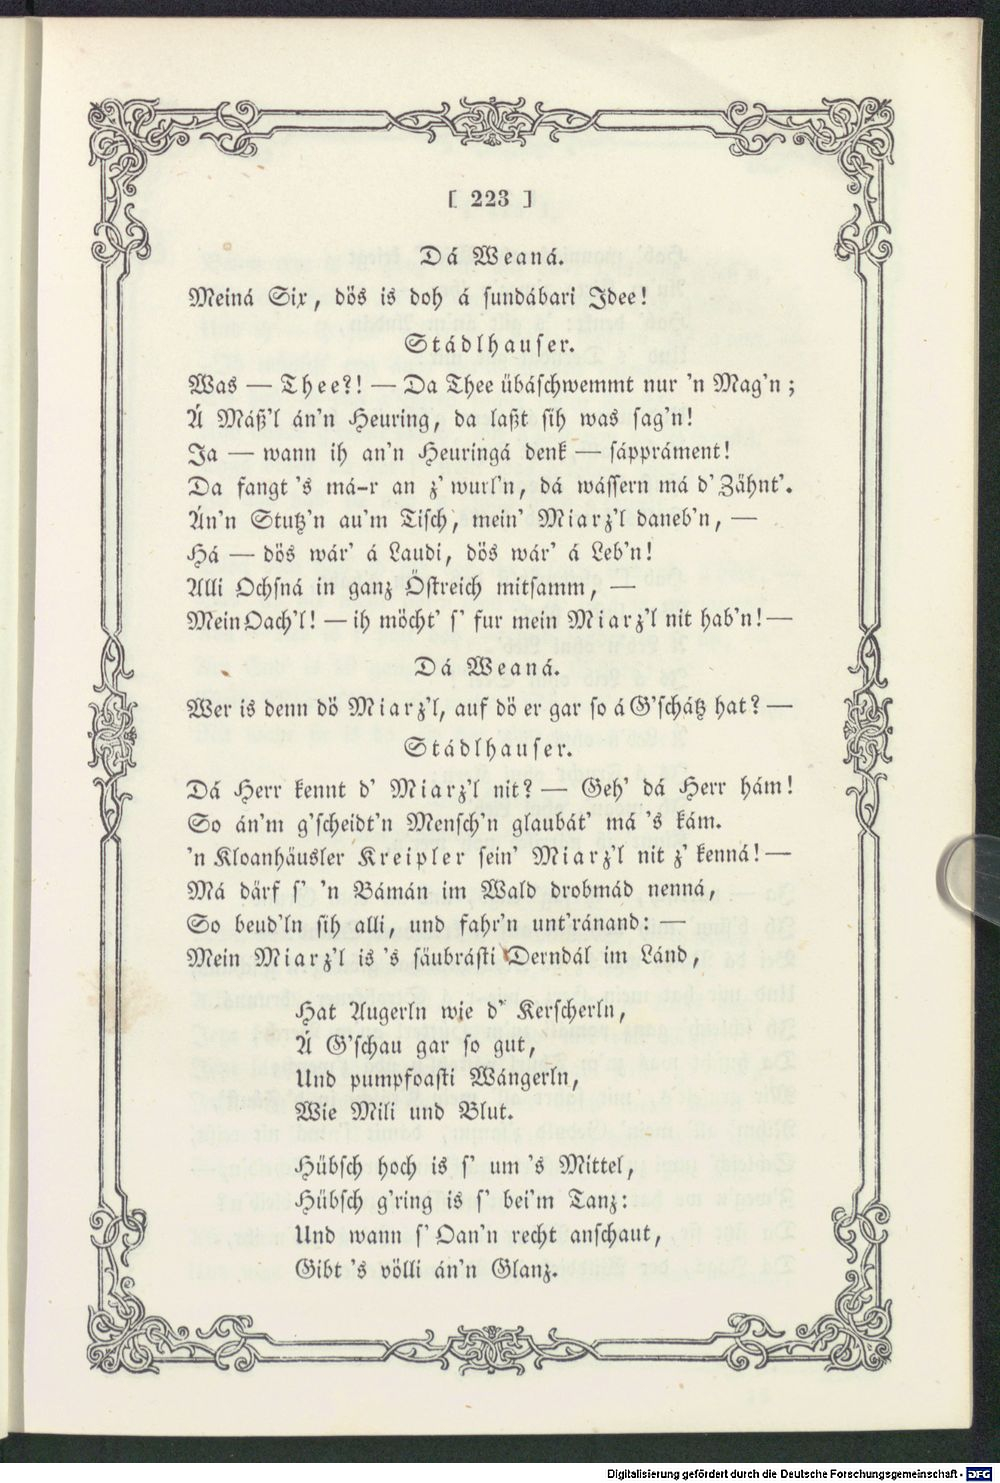 [ 223 ]
Dá Weaná.
Meiná Six, dös is doh á sundábari Idee!
Stádlhauser.
Was — Thee?! — Da Thee übáschwemmt nur 'n Mag'n;
Á Máß'l án'n Heuring, da laßt sih was sag'n!
Ja — wann ih an'n Heuringá denk — sáppráment!
Da fangt 's má-r an z' wurl'n, dá wássern má d' Zähnt'.
Án'n Stutz'n au'm Tisch, mein' Miarz'l daneb'n, —
Há — dös wár' á Laudi, dös wár' á Leb'n!
Alli Ochsná in ganz Östreich mitsamm, —
Mein Oach'l! — ih möcht' s' fur mein Miarz'l nit hab'n! —
Dá Weaná.
Wer is denn dö Miarz'l, auf dö er gar so á G'schátz hat? —
Stádlhauser.
Dá Herr kennt d' Miarz'l nit? — Geh' dá Herr hám!
So án'm g'scheidt'n Mensch'n glaubát' má 's kám.
'n Kloanhäusler Kreipler sein' Miarz'l nit z' kenná! —
Má dárf s' 'n Bámán im Wald drobmád nenná,
So beud'ln sih alli, und fahr'n unt'ránand: —
Mein Miarz'l is 's säubrásti Derndál im Lánd,
Hat Augerln wie d' Kerscherln,
Á G'schau gar so gut,
Und pumpfoasti Wángerln,
Wie Mili und Blut.
Hübsch hoch is s' um 's Mittel,
Hübsch g'ring is s' bei'm Tanz:
Und wann s' Oan'n recht anschaut,
Gibt 's völli án'n Glanz.
Digitalisierung gefördert durch die Deutsche Forschungsgemeinschaft - DFG